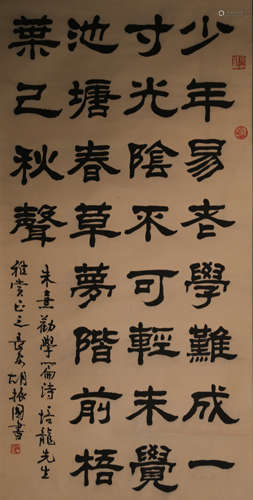 少年易老學難成一
寸光陰不可輕未覺
池塘春草夢階前梧
葉已秋聲
朱熹勸學篇詩 培龍先生
雅賞正之長安胡振國書